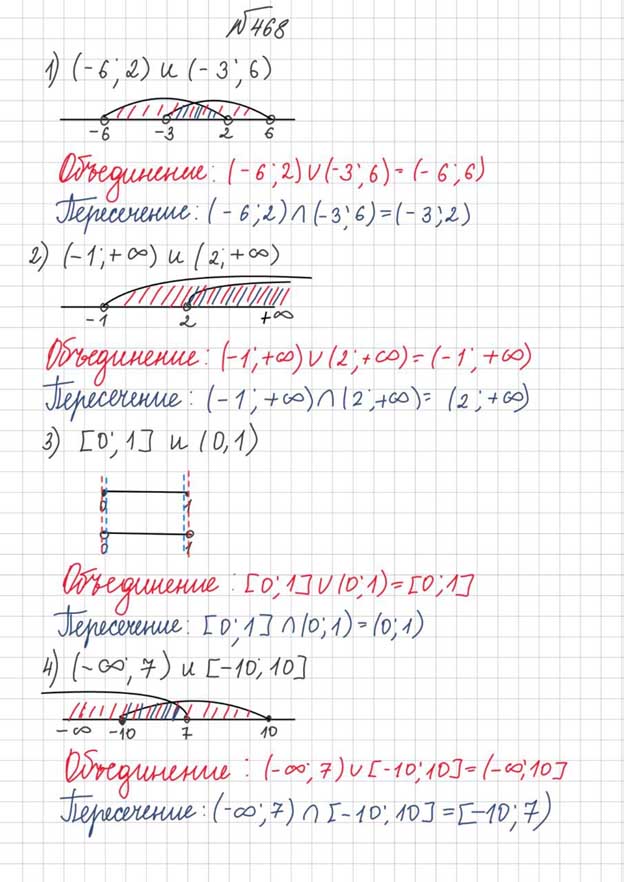 №468
1) (-6; 2) и (-3; 6)
-6 -3 2 6
Объединение: (-6; 2) ∪ (-3; 6) = (-6; 6)
Пересечение: (-6; 2) ∩ (-3; 6) = (-3; 2)
2) (-1; +∞) и (2; +∞)
-1 2 +∞
Объединение: (-1; +∞) ∪ (2; +∞) = (-1; +∞)
Пересечение: (-1; +∞) ∩ (2; +∞) = (2; +∞)
3) [0; 1] и (0, 1)
0 1
0 1
Объединение: [0; 1] ∪ (0; 1) = [0; 1]
Пересечение: [0; 1] ∩ (0; 1) = (0; 1)
4) (-∞; 7) и [-10; 10]
-∞ -10 7 10
Объединение: (-∞; 7) ∪ [-10; 10] = (-∞; 10]
Пересечение: (-∞; 7) ∩ [-10; 10] = [-10; 7)